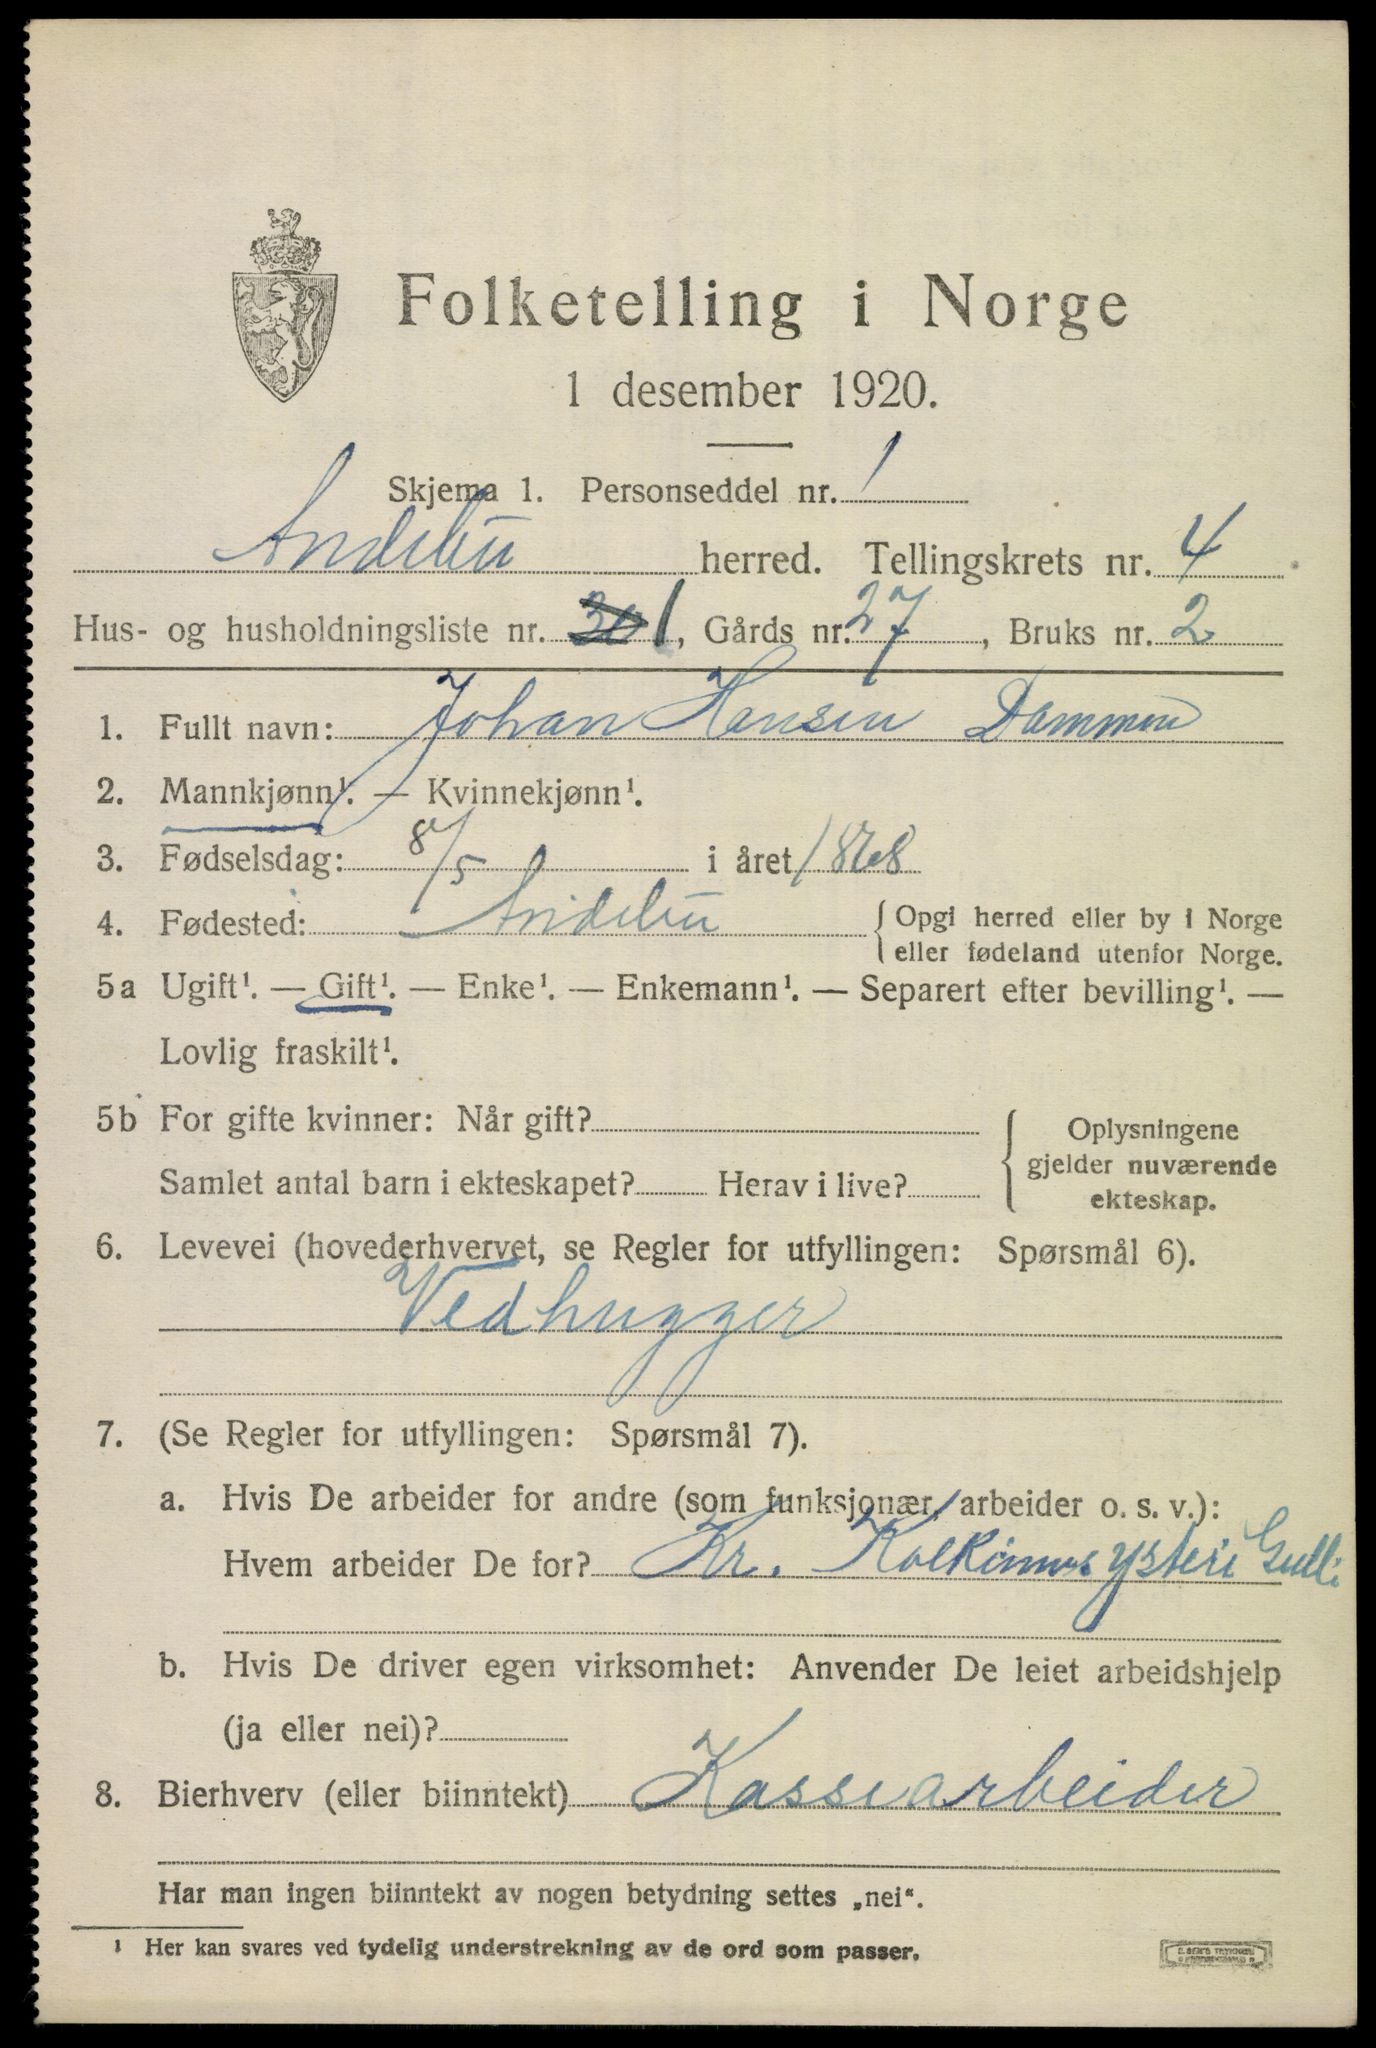 Folketelling i Norge
1 desember 1920.
Skjema 1. Personseddel nr. 1
Andebu herred. Tellingskrets nr. 4
Hus- og husholdningsliste nr. 1, Gårds nr. 27, Bruks nr. 2
1. Fullt navn: Johan Hansen Dammen
2. Mannkjønn¹. — Kvinnekjønn¹.
3. Fødselsdag: 8/5 i året 1868
4. Fødested: Andebu {Opgi herred eller by i Norge
eller fødeland utenfor Norge.
5a Ugift¹. — Gift¹. — Enke¹. — Enkemann¹. — Separert efter bevilling¹. —
Lovlig fraskilt¹.
5b For gifte kvinner: Når gift? { Oplysningene
gjelder nuværende
Samlet antal barn i ekteskapet? Herav i live? ekteskap.
6. Levevei (hovederhvervet, se Regler for utfyllingen: Spørsmål 6).
Vedhugger
7. (Se Regler for utfyllingen: Spørsmål 7).
a. Hvis De arbeider for andre (som funksjonær, arbeider o. s. v.):
Hvem arbeider De for? Kr. ysteri Gulli
b. Hvis De driver egen virksomhet: Anvender De leiet arbeidshjelp
(ja eller nei)?
8. Bierhverv (eller biinntekt) Kassearbeider
Har man ingen biinntekt av nogen betydning settes „nei“.
¹ Her kan svares ved tydelig understrekning av de ord som passer.